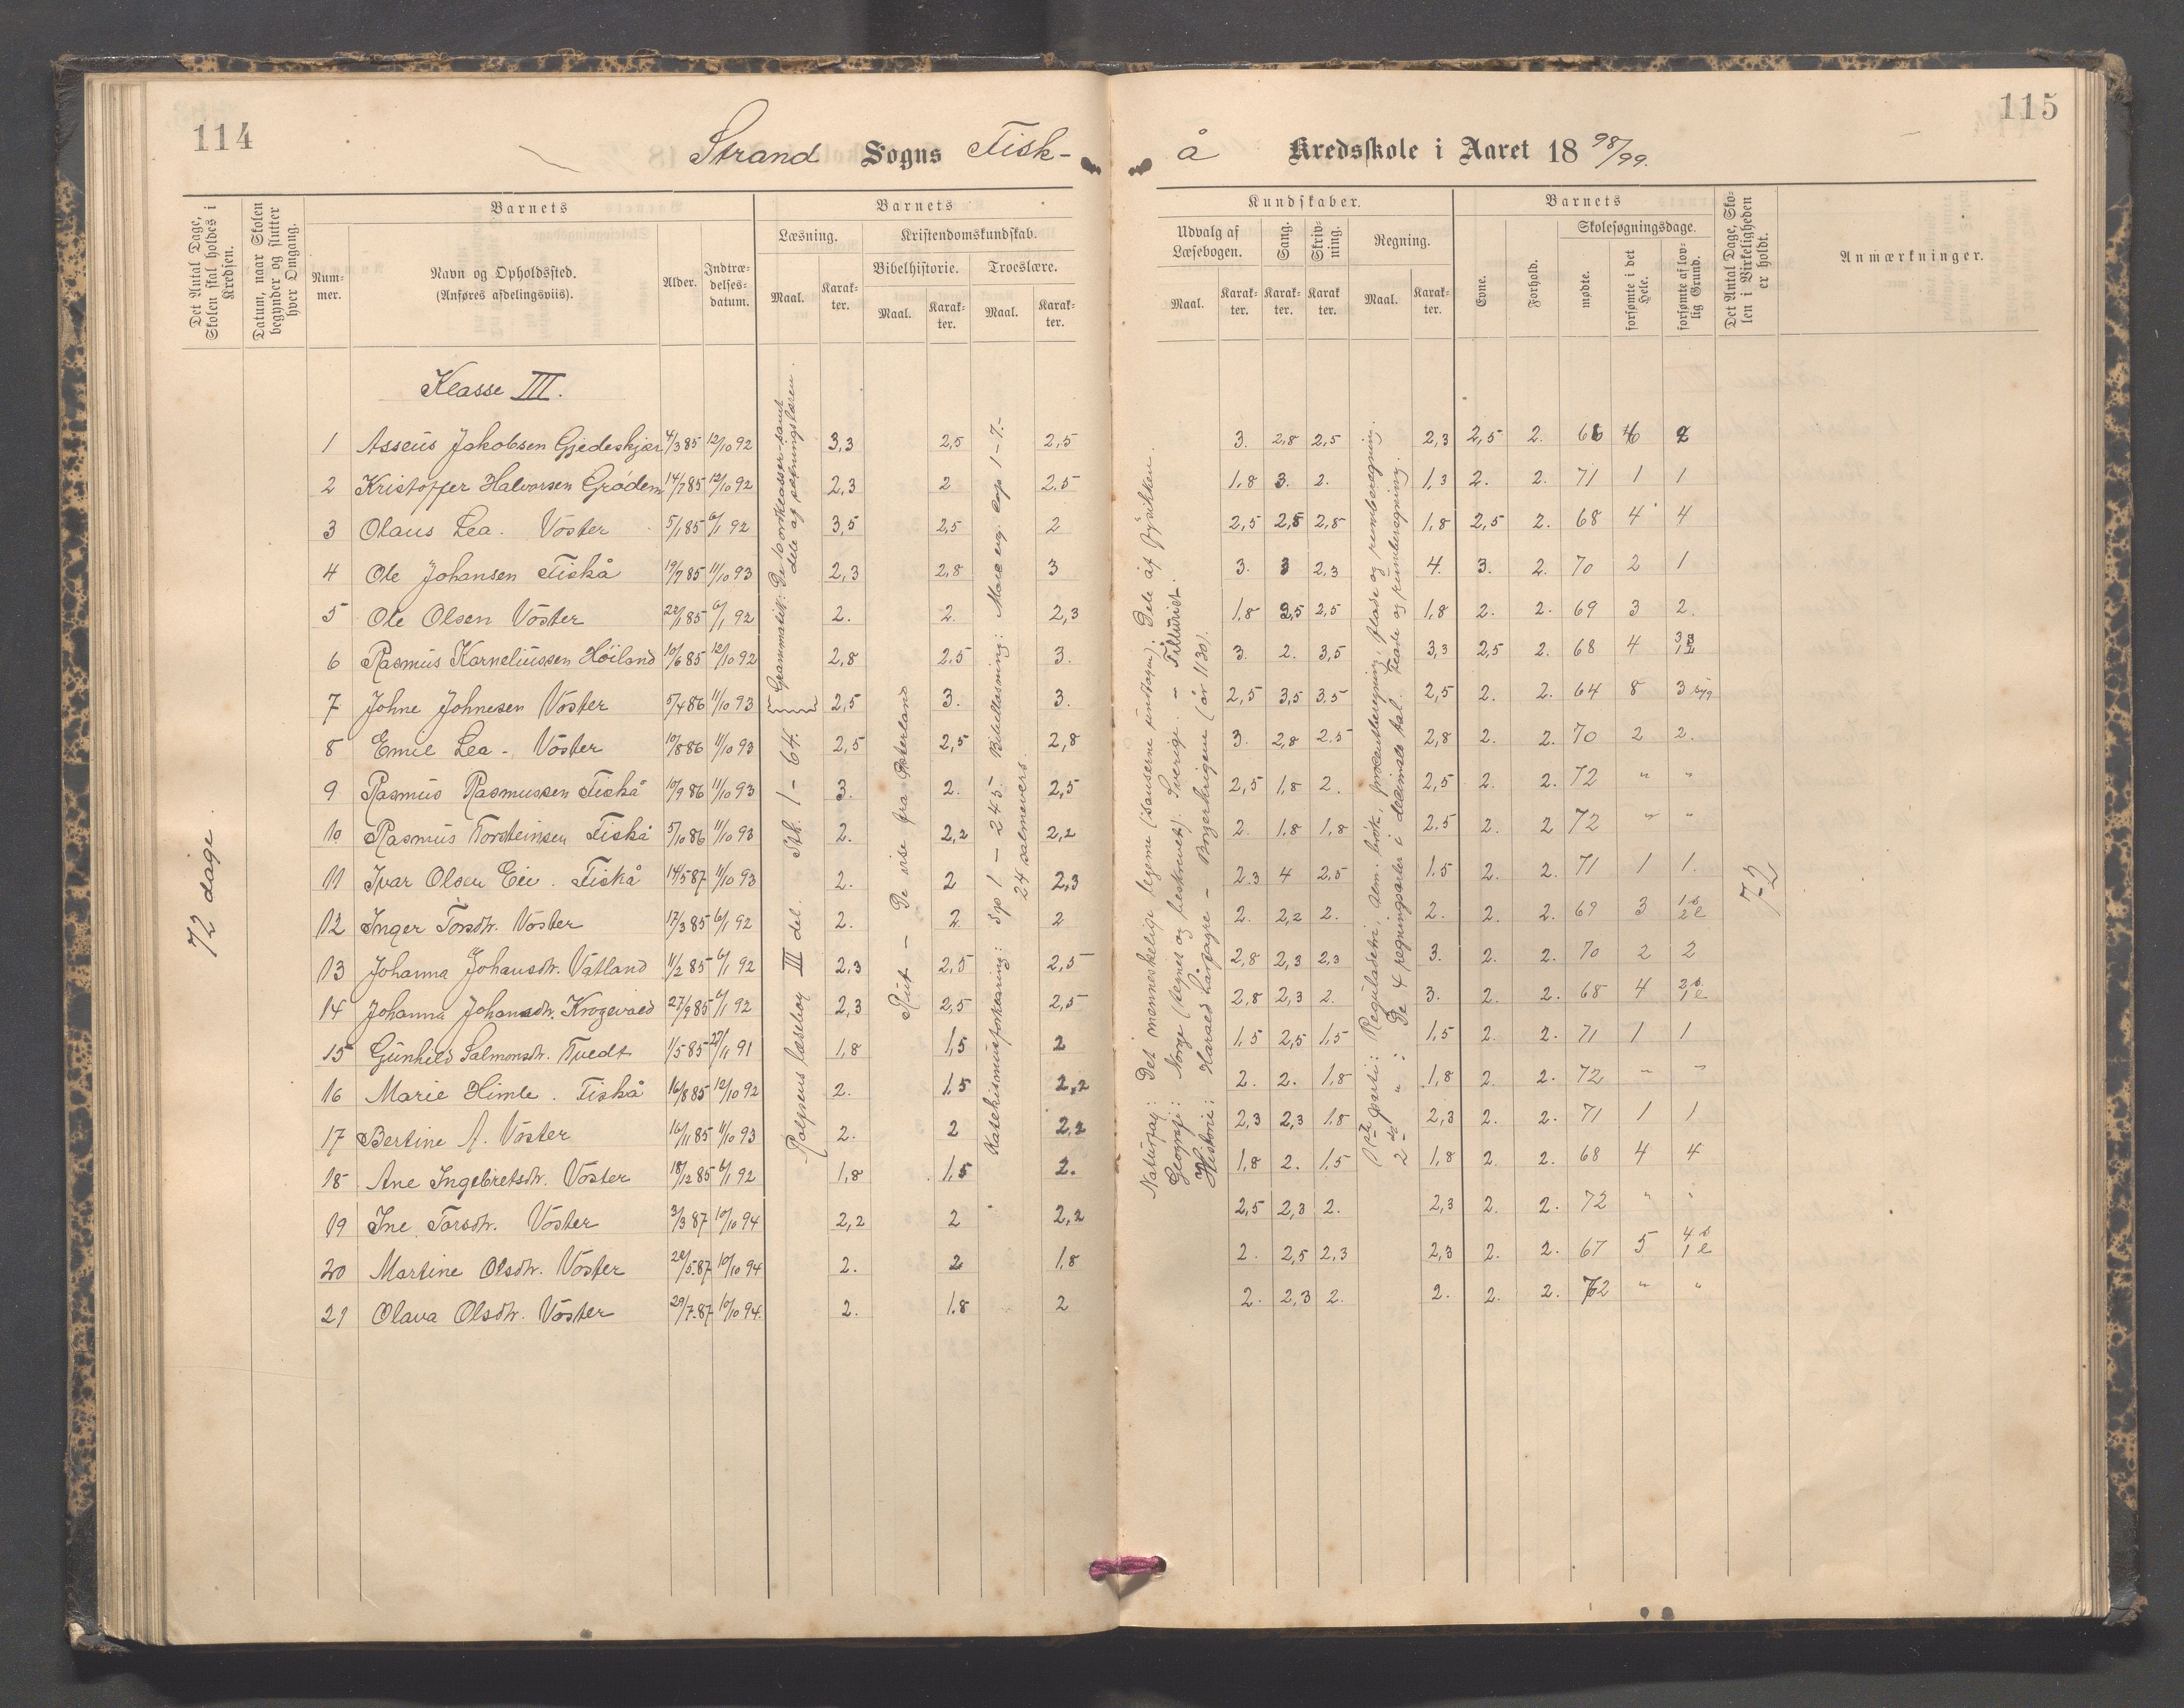 114
Strand Sogns Fisk-
Det Antal Dage, Skolen skal holdes i Kredsen.
Datum, naar Skolen begynder og slutter hver Omgang.
Barnets
Num-mer.
Navn og Opholdssted.
(Anføres afdelingsviis).
Alder.
Indtræ-delses-datum.
Barnets
Læsning.
Kristendomskundskab.
Bibelhistorie.
Troeslære.
Maal.
Karak-ter.
Maal.
Karak-ter.
Maal.
Karak-ter.
Klasse III.
1 Asseüs Jakobsen Gjedeskjær 4/3 85 12/10 92 3,3 2,5 2,5
2 Kristoffer Halvorsen Grødem 14/7 85 12/10 92 2,3 2 2.5
3 Olaus Lea. Voster 5/1 85 6/1 92 3,5 2,5 2
4 Ole Johansen Fiskå 19/7 85 11/10 93 2,3 2,8 3
5 Ole Olsen Voster 22/1 85 6/1 92 2. 2. 2,3
6 Rasmus Karneliussen Höiland 10/6 85 12/10 92 2,8 2.5 3.
7 Johne Johnesen Voster 5/4 86 11/10 93 2,5 3. 3.
8 Emil Lea - Voster 10/8 86 11/10 93 2,5 2,5 2,8
9 Rasmus Rasmussen Fiskå 10/9 86 11/10 93 3. 2. 2,5
10 Rasmus Torsteinsen Fiskå 5/10 86 11/10 93 2. 2,2 2,2
11 Ivar Olsen Eie. Fiskå 14/5 87 11/10 93 2. 2 2,3
12 Inger Torsdtr. Voster 17/3 85 6/1 92 2. 2. 2
13 Johanna Johansdtr. Vatland 11/2 85 6/1 92 2,3 2,5 2,5
14 Johanna Johansdtr. Krogevold 27/9 85 6/1 92 2,3 2,5 2,5
15 Gunhild Salmonsdtr. Tvedt 1/5 85 27/11 91 1,8 1,5 2
16 Marie Himle. Fiskå 16/8 85 12/10 92 2. 1,5 2,2
17 Bertine A. Voster 16/11 85 11/10 93 2. 2 2,2
18 Ane Ingebretsdtr. Voster 18/12 85 6/1 92 1,8 1,5 2.
19 Ine Torsdtr. Voster 3/3 87 10/10 94 2,2 2 2,2
20 Martine Olsdtr. Voster 22/5.87 10/10 94 2. 2 1,8
21 Olava Olsdtr. Voster 29/7.87 10/10 94. 2. 1.8 2
72 dage.
Rolfsens læsebog III del. Stk. 1 - 64.
Grammatik: De 10 ordklasser samt
dele af sætningslæren.
Rut - De vise fra Østerland
Katekismusforklaring: Sp 1 - 245. Bibellæsning: Mark evg. cap 1-7.-
24 salmevers.
115
å Kredsskole i Aaret 1898/99.
Kundskaber.
Udvalg af Læsebogen.
Sang.
Skriv-ning.
Regning.
Maal.
Karak-ter.
Karak-ter.
Karak ter.
Maal.
Karak-ter.
Barnets
Evne.
Forhold.
Skolesøgningsdage.
mødte.
forsømte i det Hele.
forsømte af lov-lig Grund.
Det Antal Dage, Sko-len i Virkeligheden er holdt.
Anmærkninger.
3. 2,8 2,5 2,3 2,5 2. 66 6 2
1,8 3. 2. 1,3 2. 2. 71 1 1
2,5 2,5 2,8 1,8 2,5 2. 68 4 4
3. 3 2,3 4. 3. 2. 70 2 1
1,8 2,5 2,5 1,8 2. 2. 69 3 2.
3. 2. 3,5 3,3 2,5 2. 68 4
2,5 3,5 3,5 2,5 2. 2. 64 8 3 syg
3. 2,8 2.5 2,8 2. 2. 70 2 2.
2,5 1,8 2. 2,5 2. 2. 72 " "
2. 1,8 1,8 2.5 2. 2 72 " "
2.3 4 2,5 1.5 2. 2. 71 1 1.
2. 2,2 2. 2. 2. 2. 69 3 1 s 2 l
2,8 2,3 2,3 3. 2. 2. 70 2 2
2,8 2,3 2. 3. 2. 2. 68 4 2 s 1 l
1,5 2,5 1,5 1,5 2. 2. 71 1 1
2. 2. 1,8 1,8 2. 2. 72 " "
2,3 2,3 1.8 2,3 2. 2. 71 1 1
1,8 2. 1,5 1,8 2. 2. 68 4 4
2,5 2,3 2. 2,3 2. 2. 72 " "
2. 2,5 2,3 2,3 2. 2. 67 5 4 s 1 l
2. 2,3 2. 2. 2. 2. 72 " "
Naturfag: Det menneskelige legeme (sanserne undtagen). Dele af fysikken.
Geografi: Norge (tegnet og beskrevet). Sverige. -
Historie: Harald hårfagre - Borgerkrigene (år 1130).
1ste parti: Reguladetri, alm. brök, procentberegning, flade og rumberegning.
2 " " : De 4 regningsarter i decimaltal. Flade og rumberegning.
72